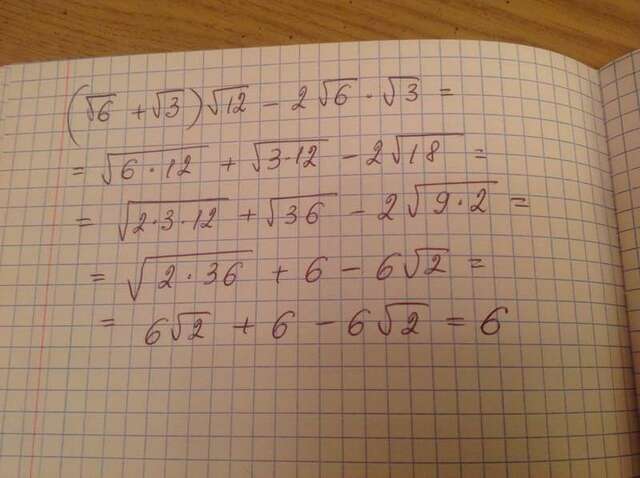 (√6 + √3)√12 − 2√6 · √3 =
= √(6 · 12) + √(3 · 12) − 2√18 =
= √(2 · 3 · 12) + √36 − 2√(9 · 2) =
= √(2 · 36) + 6 − 6√2 =
= 6√2 + 6 − 6√2 = 6